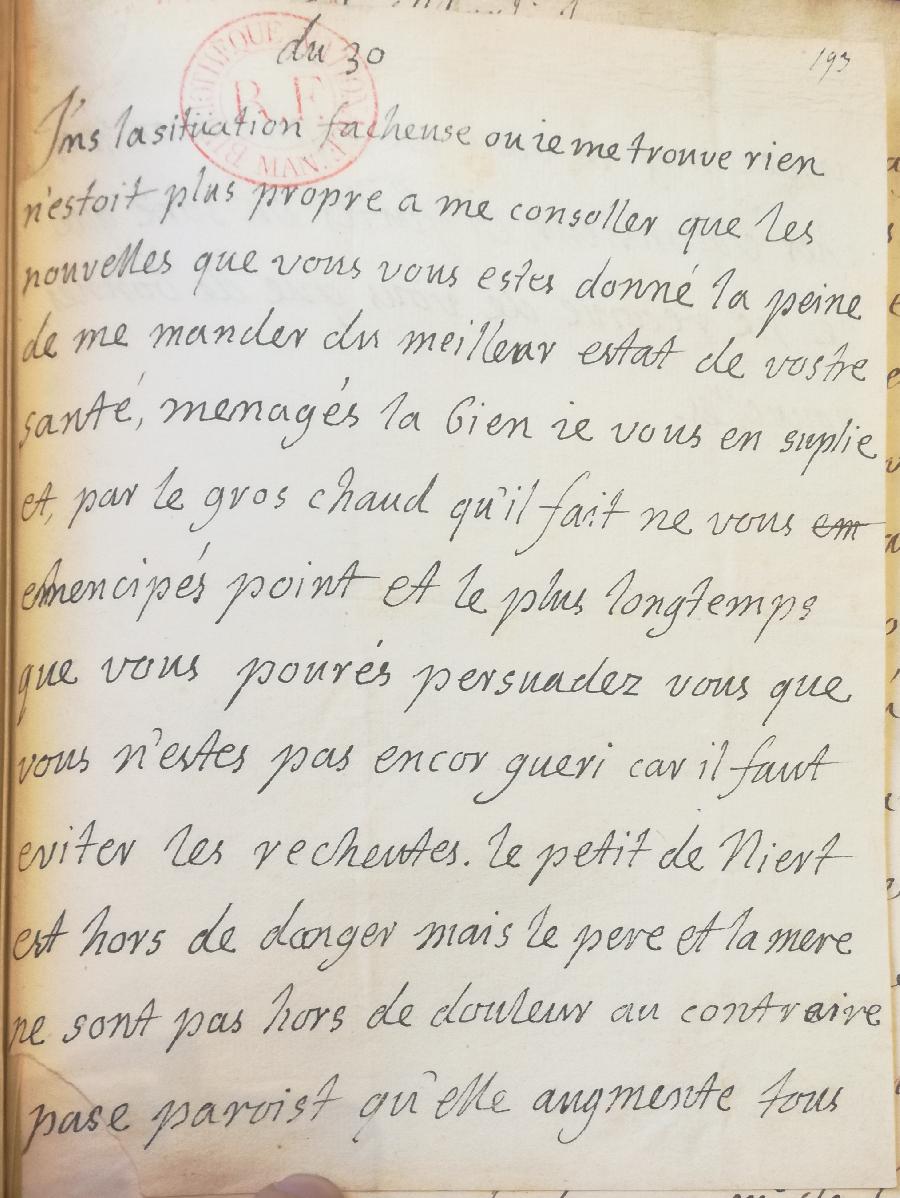 du 30
193
BIBLIOTHEQUE NATIONALE MAN.
R.F.
Dns la situation facheuse ou ie me trouve rien
n'estoit plus propre a me consoller que les
nouvelles que vous vous estes donné la peine
de me mander du meilleur estat de vostre
santé, menagés la bien ie vous en suplie
et, par le gros chaud qu'il fait ne vous em
emencipés point et le plus longtemps
que vous pourés persuadez vous que
vous n'estes pas encor gueri car il faut
eviter les recheutes. le petit de Niert
est hors de danger mais le pere et la mere
ne sont pas hors de douleur au contraire
pase paroist qu'elle augmente tous